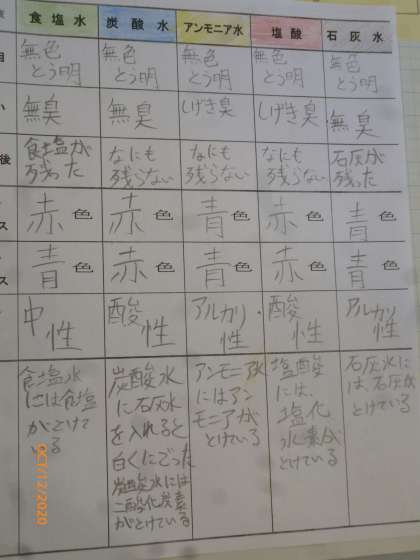 食塩水 炭酸水 アンモニア水 塩酸 石灰水
無色 無色 無色 無色 無色
とう明 とう明 とう明 とう明 とう明
無臭 無臭 しげき臭 しげき臭 無臭
後
食塩が なにも なにも なにも 石灰が
残った 残らない 残らない 残らない 残った
赤色 赤色 青色 赤色 青色
ス
青色 赤色 青色 赤色 青色
ス
中性 酸性 アルカリ性 酸性 アルカリ性
食塩水
には食塩
がとけて
る
炭酸水
に石灰水
を入れると
白くにごった
炭酸水には
二酸化炭素
がとけている
アンモニア水
にはアン
モニアが
とけている
塩酸
には、
塩化
水素が
とけている
石灰水に
は、石灰が
とけている
OCT/12/2020